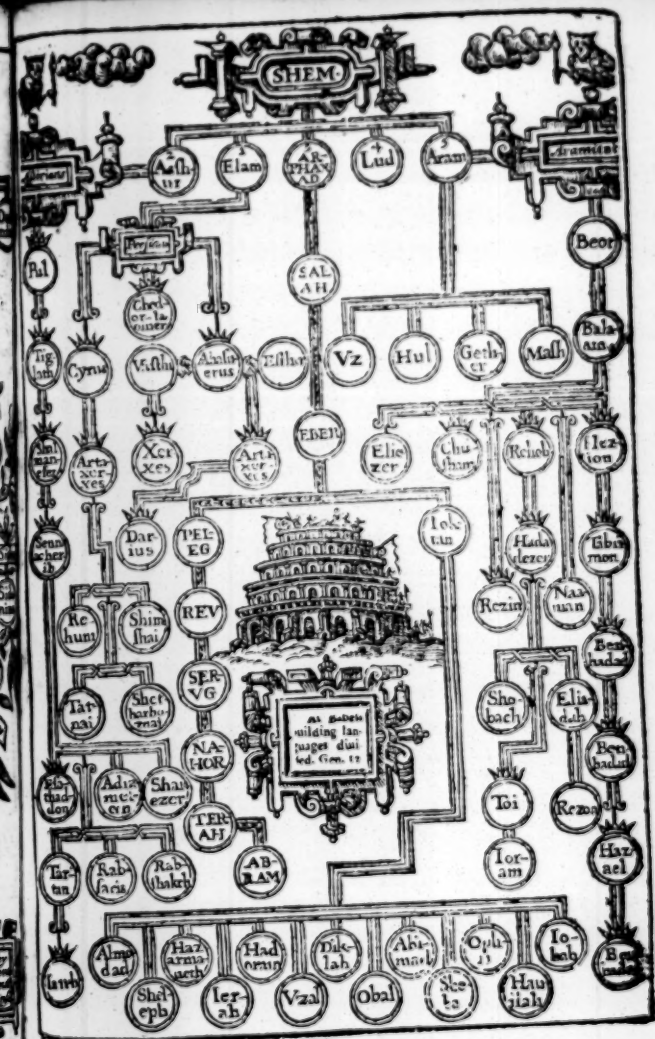 SHEM.
2
Ashur
3
Elam
AR-
PHAX
AD
4
Lud
5
Aram
Aramites
Pul
Beor
Ched-
or-la-
omer
SAL
AH
Tig-
lath
Cyrus
Vasthi
Ahasu-
erus
Esther
Vz
Hul
Geth-
er
Mash
Bala-
am
Shal-
man-
esez
Arta-
xer-
xes
Xer-
xes
Arta-
xer-
xes
EBER
Elie
zer
Chu-
sham
Rehob
Hez-
ion
Senn
acher
ib
Dar-
ius
PEL-
EG
Iok-
tan
Hada
dezer
Tabri
mon
Re-
hum
Shim
shai
REV
Rezin
Naa-
man
Ben-
hadad
Tat-
nai
Shet
harboz
nai
SER-
VG
Sho-
bach
Elia-
dah
At Babels
building lan-
guages diui-
ded. Gen. 11
NA-
HOR
Ben-
hadad
Esar
haddon
Adra
melech
Shar
ezer
TER-
AH
Toi
Rezon
Tar-
tan
Rab-
saris
Rab-
shakeh
AB-
RAM
Ior-
am
Haz-
ael
Almo
dad
Haz
arma-
ueth
Had
oram
Dik-
lah
Abi-
mael
Ophi-
r
Io-
bab
Shel-
eph
Ier-
ah
Vzal
Obal
She-
ba
Haui-
ilah
Ben
hadad